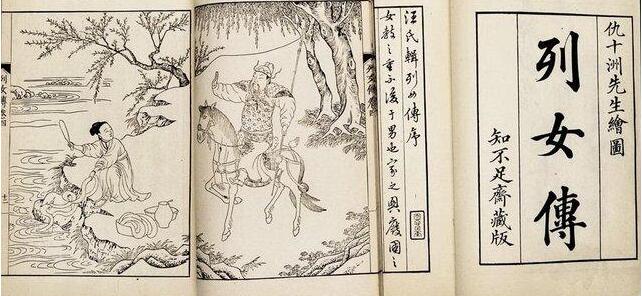 仇十洲先生繪圖
列女傳
知不足齋藏版
汪氏輯列女傳序
女教之重不後于男也家之興廢國之